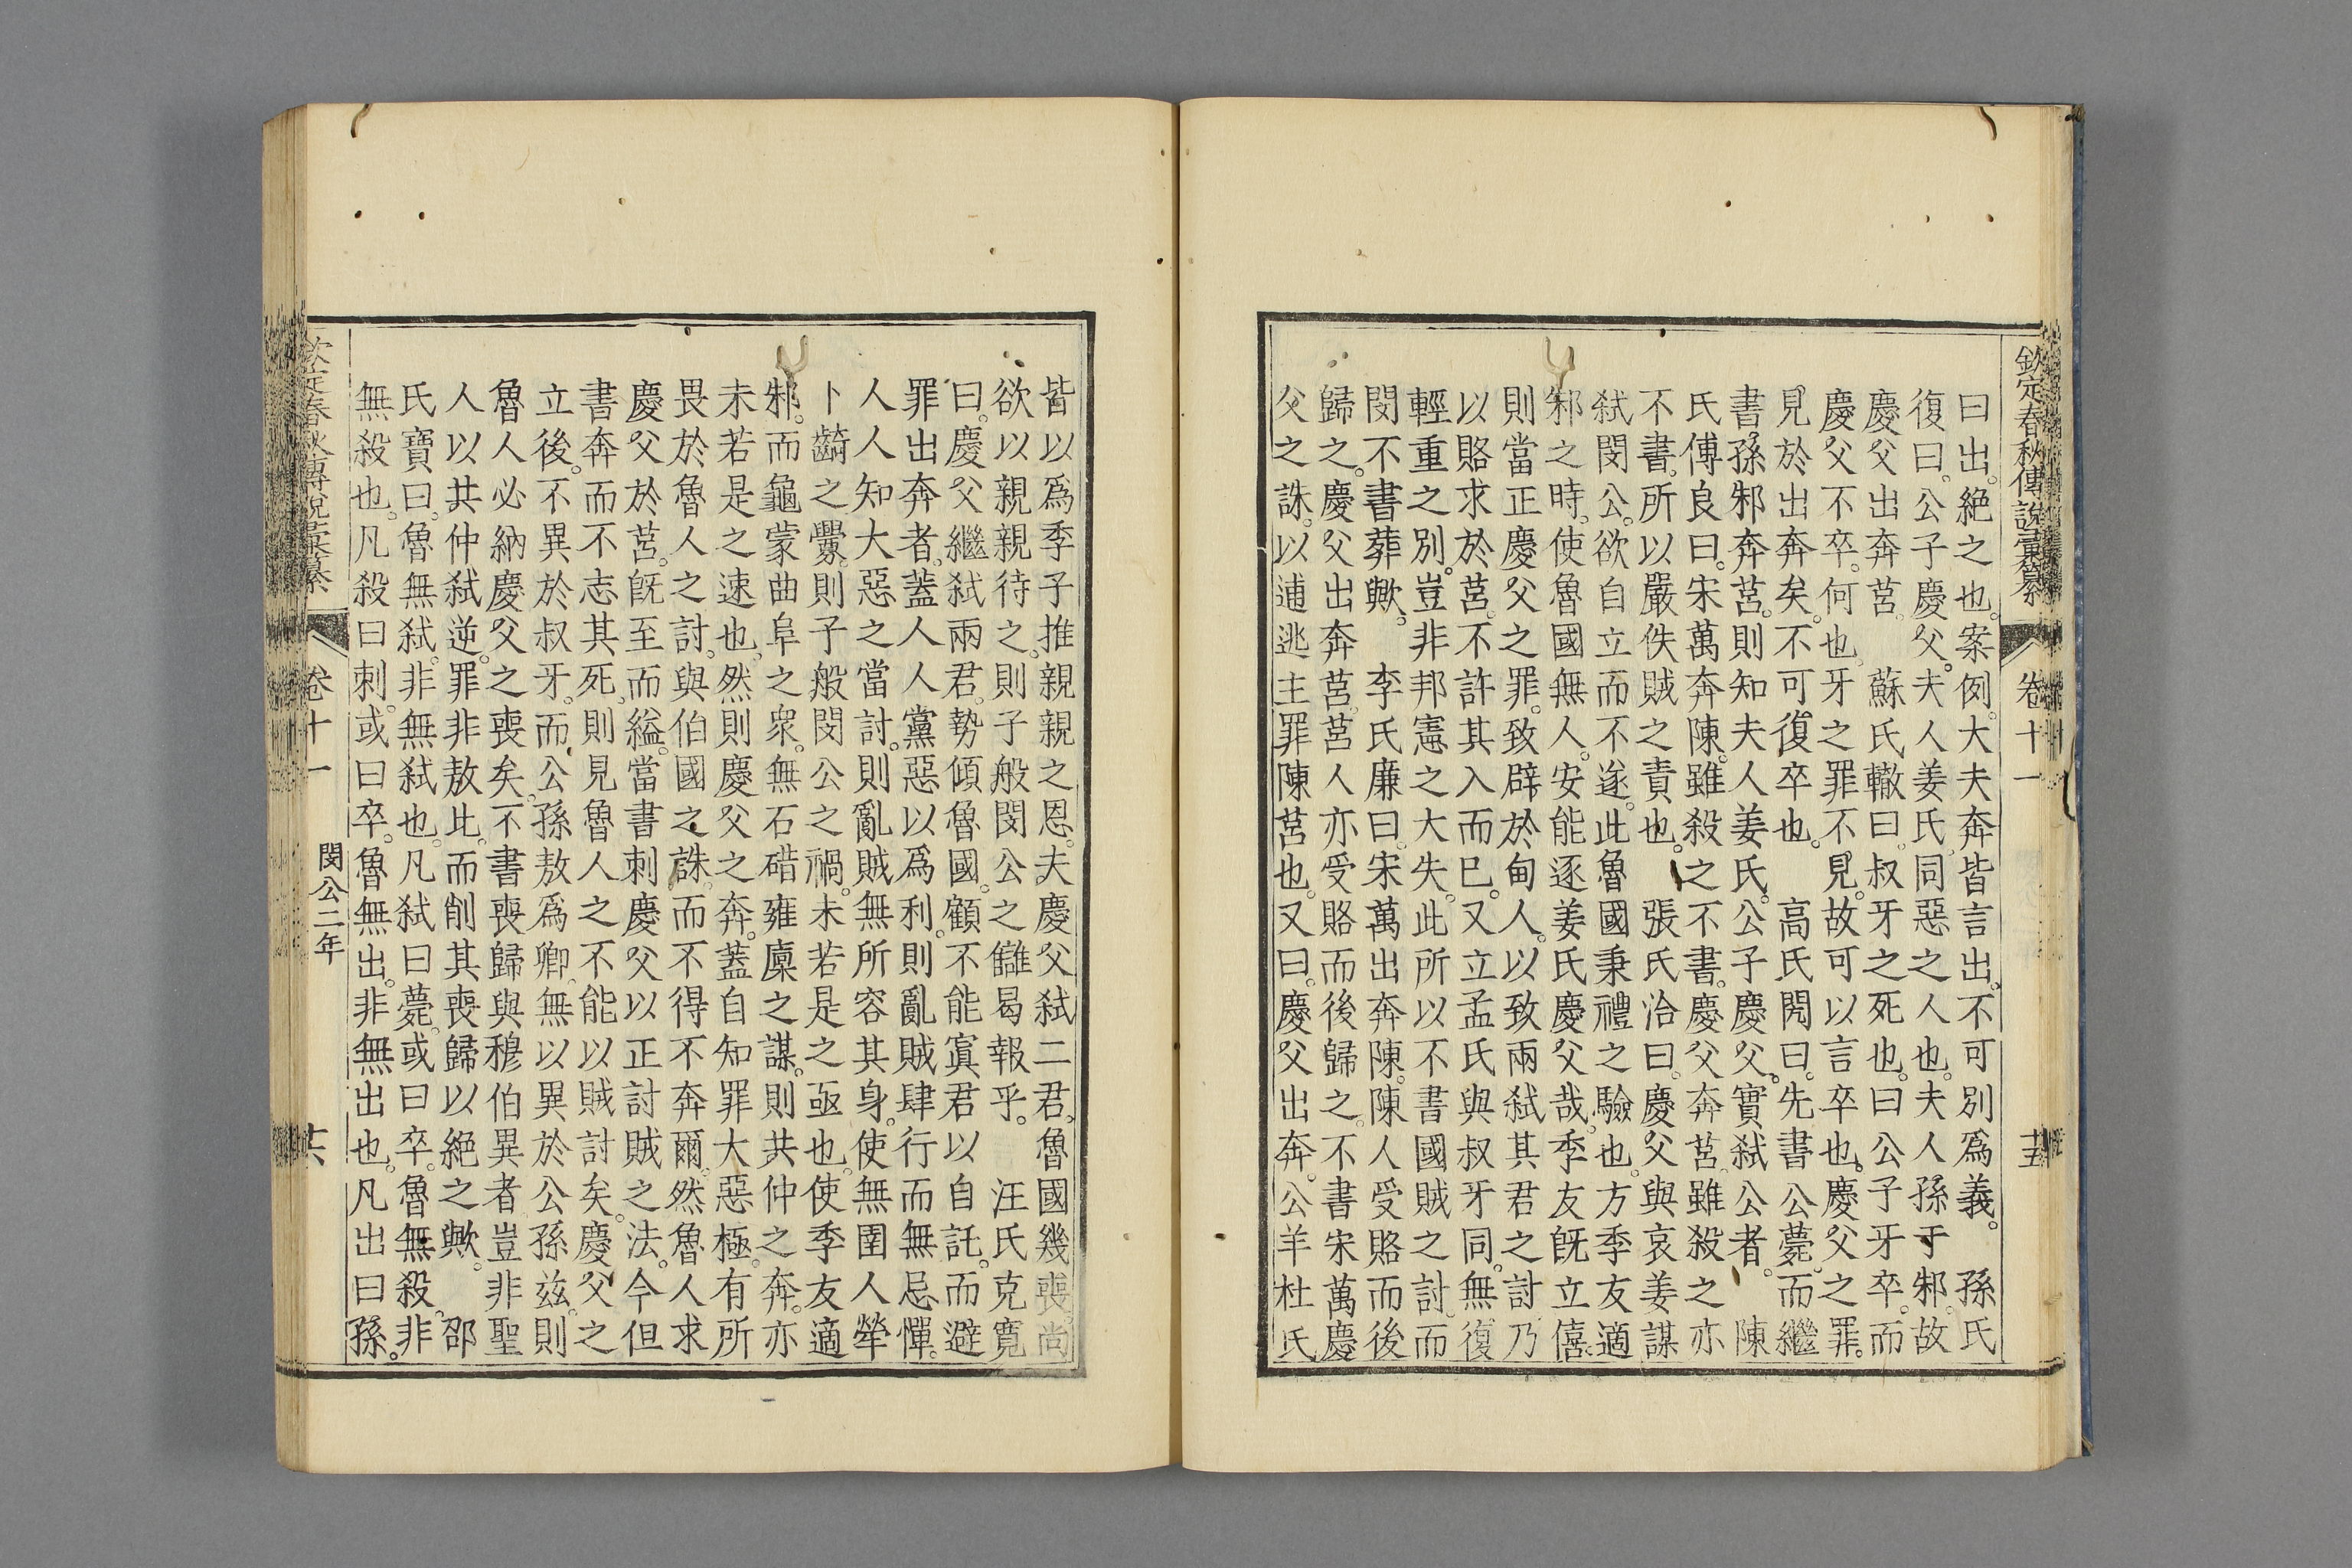 欽定春秋傳說彙纂 卷十一 十五
曰出。絕之也。案例。大夫奔皆言出。不可別爲義。 孫氏
復曰。公子慶父。夫人姜氏。同惡之人也。夫人孫于邾。故
慶父出奔莒。 蘇氏轍曰。叔牙之死也。曰公子牙卒。而
慶父不卒。何也。牙之罪不見。故可以言卒也。慶父之罪。
見於出奔矣。不可復卒也。 高氏閌曰。先書公薨。而繼
書孫邾奔莒。則知夫人姜氏。公子慶父。實弒公者。 陳
氏傅良曰。宋萬奔陳。雖殺之不書。慶父奔莒。雖殺之亦
不書。所以嚴佚賊之責也。 張氏洽曰。慶父與哀姜謀
弒閔公。欲自立而不遂。此魯國秉禮之驗也。方季友適
邾之時。使魯國無人。安能逐姜氏慶父哉。季友旣立僖。
則當正慶父之罪。致辟於甸人。以致兩弒其君之討。乃
以賂求於莒。不許其入而已。又立孟氏與叔牙同。無復
輕重之別。豈非邦憲之大失。此所以不書國賊之討。而
閔不書葬歟。 李氏廉曰。宋萬出奔陳。陳人受賂而後
歸之。慶父出奔莒。莒人亦受賂而後歸之。不書宋萬慶
父之誅。以逋逃主罪陳莒也。又曰。慶父出奔。公羊杜氏
皆以爲季子推親親之恩。夫慶父弒二君。魯國幾喪。尚
欲以親親待之。則子般閔公之讎曷報乎。 汪氏克寬
曰。慶父繼弒兩君。勢傾魯國。顧不能寘君以自託。而避
罪出奔者。蓋人人黨惡以爲利。則亂賊肆行而無忌憚。
人人知大惡之當討。則亂賊無所容其身。使無圉人犖
卜齮之釁。則子般閔公之禍。未若是之亟也。使季友適
邾。而龜蒙曲阜之衆。無石碏雍廩之謀。則共仲之奔。亦
未若是之速也。然則慶父之奔。蓋自知罪大惡極。有所
畏於魯人之討。與伯國之誅。而不得不奔爾。然魯人求
慶父於莒。旣至而縊。當書刺慶父以正討賊之法。今但
書奔而不志其死。則見魯人之不能以賊討矣。慶父之
立後。不異於叔牙。而公孫敖爲卿。無以異於公孫兹。則
魯人必納慶父之喪矣。不書喪歸與穆伯異者。豈非聖
人以其仲弒逆。罪非敖此。而削其喪歸以絕之歟。 邵
氏寶曰。魯無弒。非無弒也。凡弒曰薨。或曰卒。魯無殺。非
無殺也。凡殺曰刺。或曰卒。魯無出。非無出也。凡出曰孫。
欽定春秋傳說彙纂 卷十一 閔公二年 十六